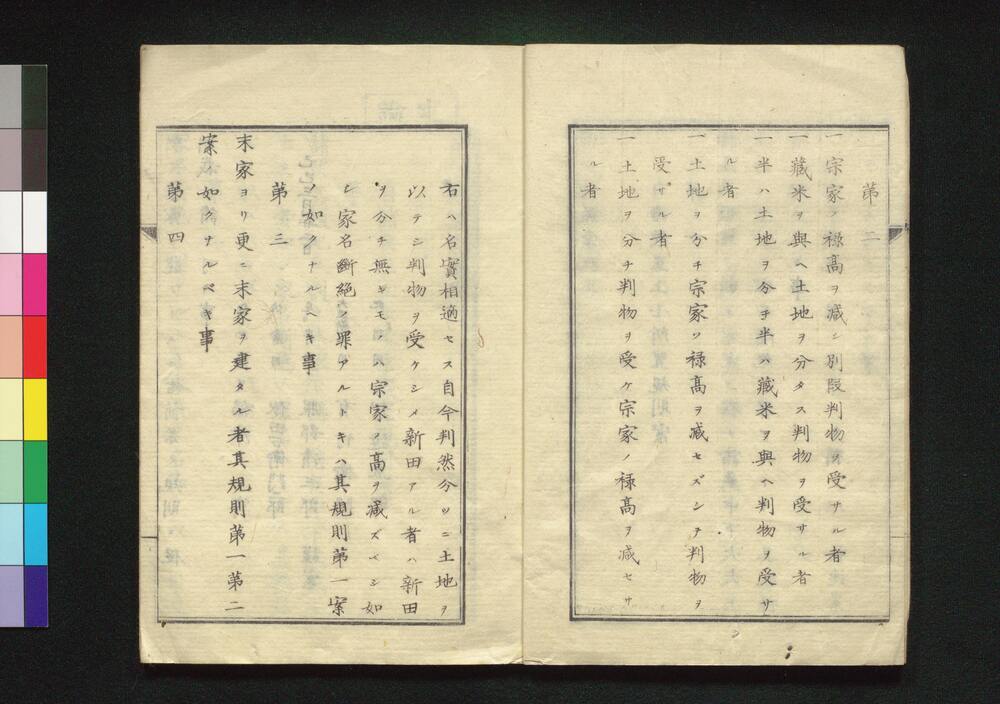 第二
一宗家ノ祿高ヲ減シ別段判物ヲ受サル者
一藏米ヲ與ヘ土地ヲ分タス判物ヲ受サル者
一半ハ土地ヲ分チ半ハ藏米ヲ與ヘ判物ヲ受サ
ル者
一土地ヲ分チ宗家ノ祿高ヲ减セズシテ判物ヲ
受サル者
一土地ヲ分チ判物ヲ受ケ宗家ノ祿高ヲ减セサ
ル者
右ハ名實相適セス自今判然分ツニ土地ヲ
以テシ判物ヲ受ケシメ新田アル者ハ新田
ヲ分チ無キモノハ宗家ノ高ヲ减ズベシ如
シ家名斷絶ノ罪アルトキハ其規則第一案
ノ如クナルヘキ事
第三
末家ヨリ更ニ末家ヲ建タル者其規則第一第二
案ノ如クナルベキ事
第四